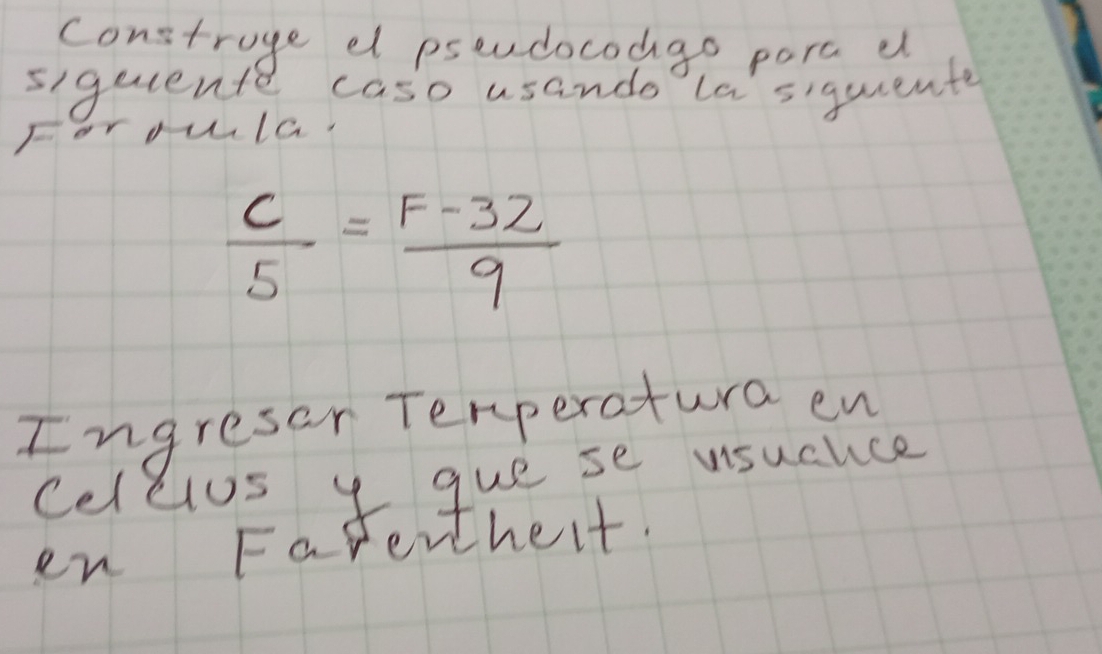 Construye el pseudocodigo para el
siguiente caso usando la siguiente
Formula.
C/5 = F-32/9
Ingresar Temperatura en
Celcius y que se visualice
en Farentheit.